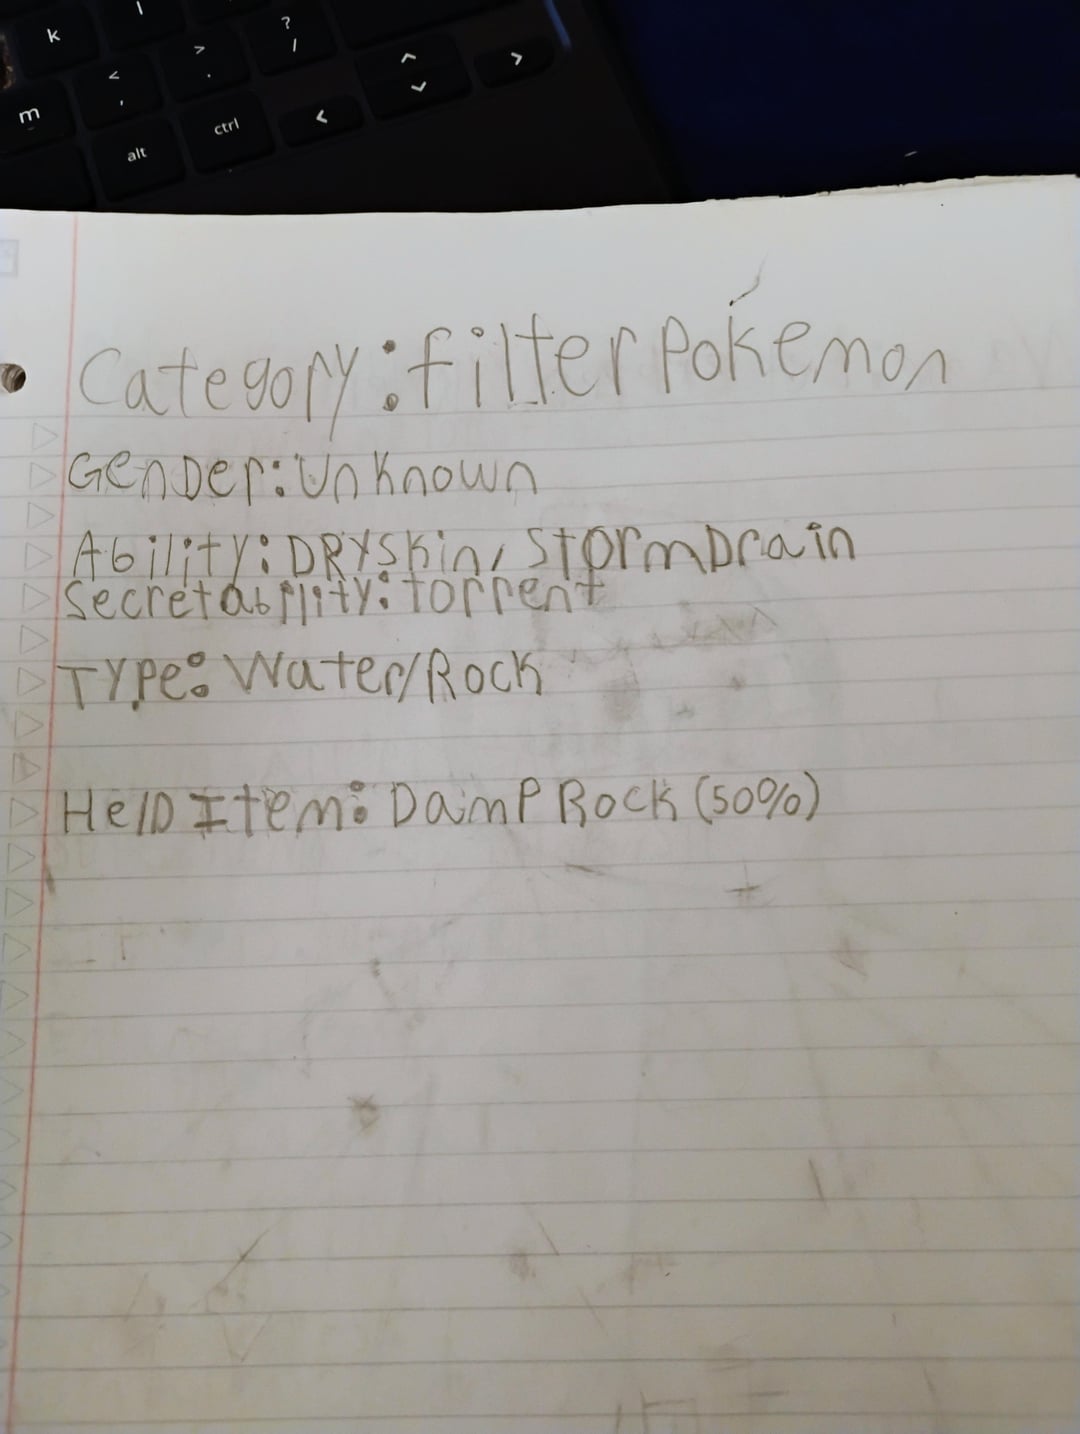 k
l
?
/
>
.
<
,
m
alt
ctrl
<
^
v
>
Category: filter Pokémon
Gender: Unknown
Ability: DRYSkin, Storm Drain
Secret ability: torrent
Type: Water/Rock
Held Item: Damp Rock (50%)